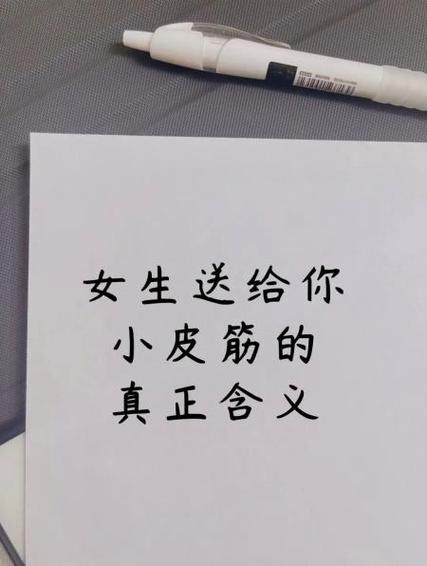 女生送给你
小皮筋的
真正含义